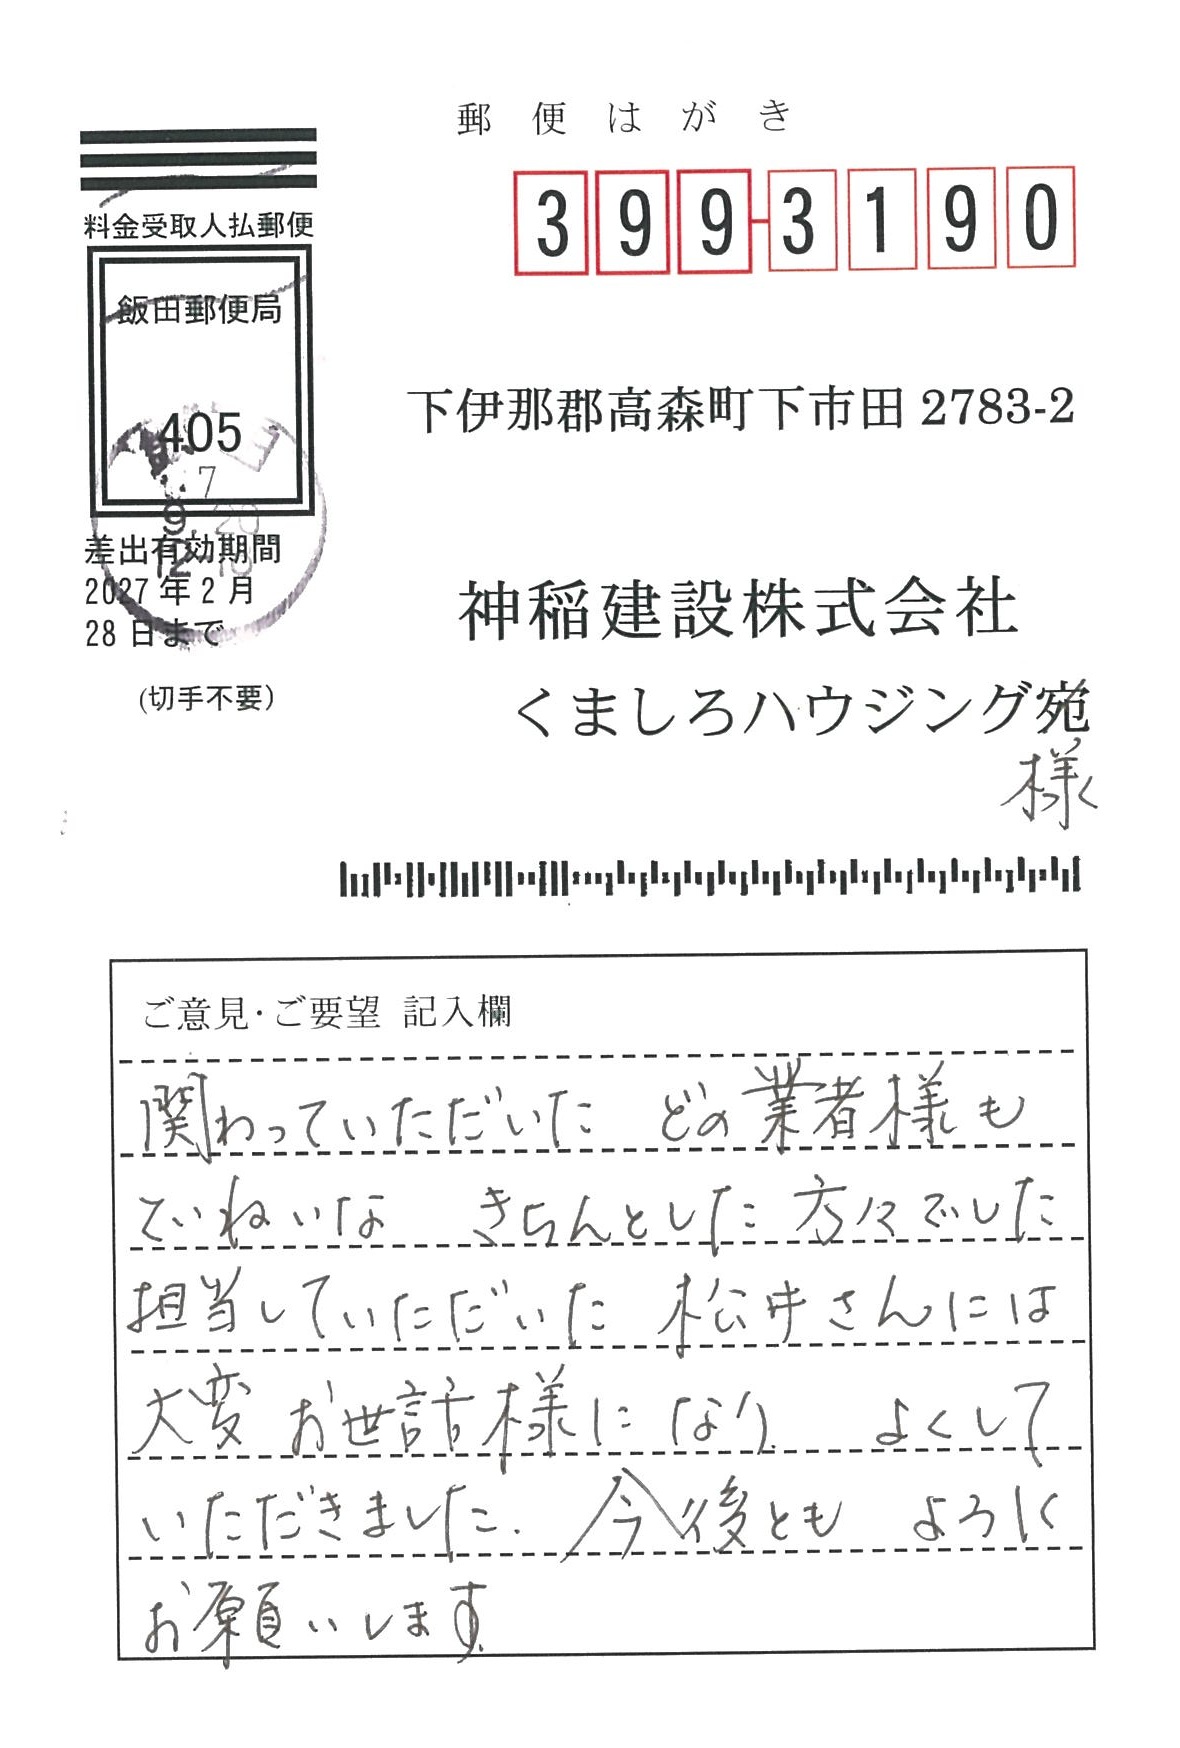 郵便はがき
399-3190
料金受取人払郵便
飯田郵便局
405
7
9.20
12-18
差出有効期間
2027年2月
28日まで
(切手不要)
下伊那郡高森町下市田2783-2
神稲建設株式会社
くましろハウジング宛
様
ご意見・ご要望 記入欄
関わっていただいた どの業者様も
ていねいな きちんとした方々でした
担当していただいた 松井さんには
大変お世話様になり よくして
いただきました. 今後とも よろしく
お願いします